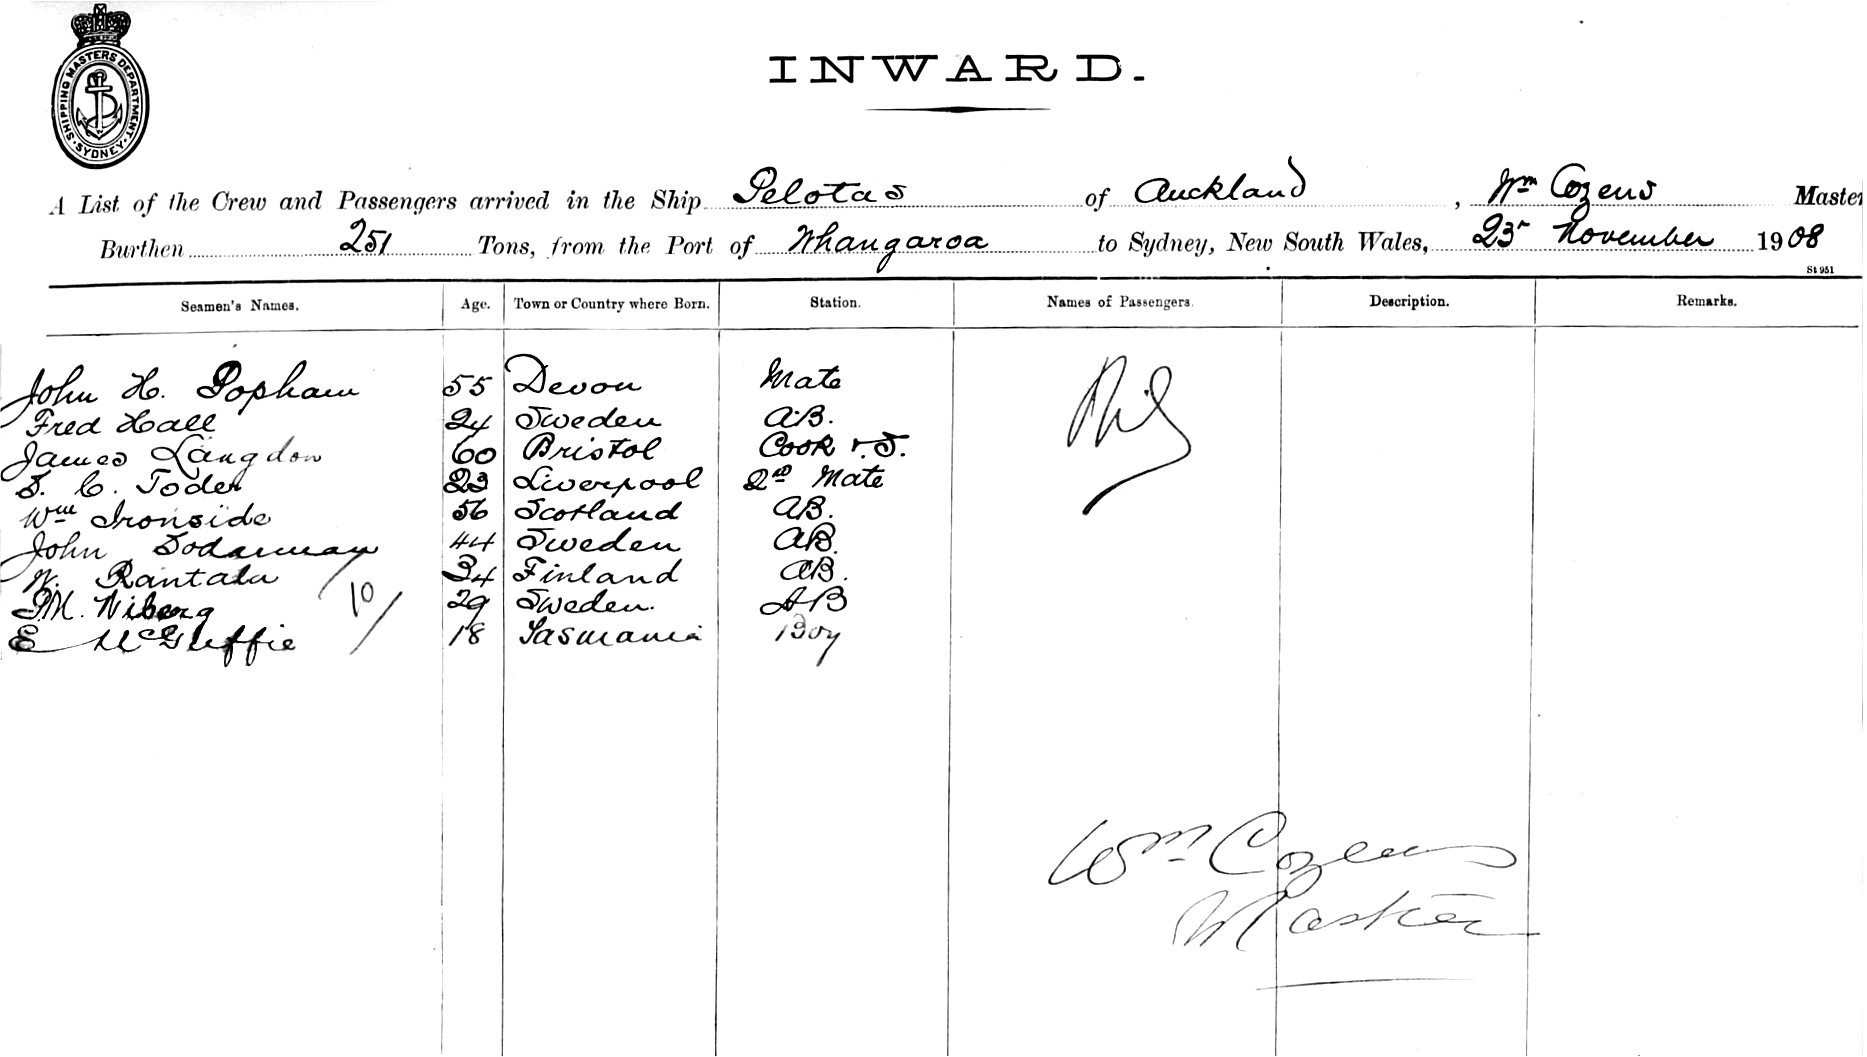 SHIPPING MASTERS DEPARTMENT · SYDNEY ·
INWARD.
A List of the Crew and Passengers arrived in the Ship Pelotas of Auckland, Wm Cozens Maste
Burthen 251 Tons, from the Port of Whangaroa to Sydney, New South Wales, 23r November 1908
St 951
Seamen's Names. Age. Town or Country where Born. Station. Names of Passengers. Description. Remarks.
John H. Popham 55 Devon Mate Nil
Fred Hall 24 Sweden AB.
James Langdon 60 Bristol Cook & S.
S. C. Toder 23 Liverpool 2nd Mate
Wm Ironside 56 Scotland AB.
John Sodarman 44 Sweden AB.
W. Rantala 34 Finland AB.
M. Wiberg 29 Sweden. AB
10/
E McGuffie 18 Tasmania Boy
Wm Cozens
Master